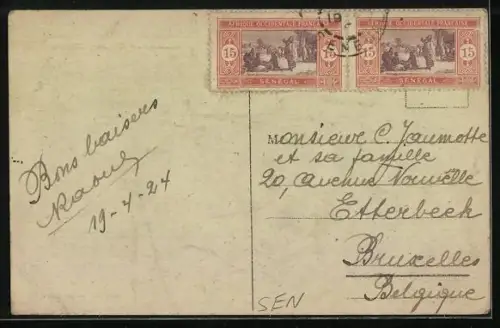 AFRIQUE OCCIDENTALE FRANÇAISE
15 15
SÉNÉGAL
AFRIQUE OCCIDENTALE FRANÇAISE
15 15
SÉNÉGAL
Bons baisers
Raoul
19-4-24
Monsieur C. Jaumotte
et sa famille
20, avenue Nouvelle
Etterbeek
Bruxelles
Belgique
SEN